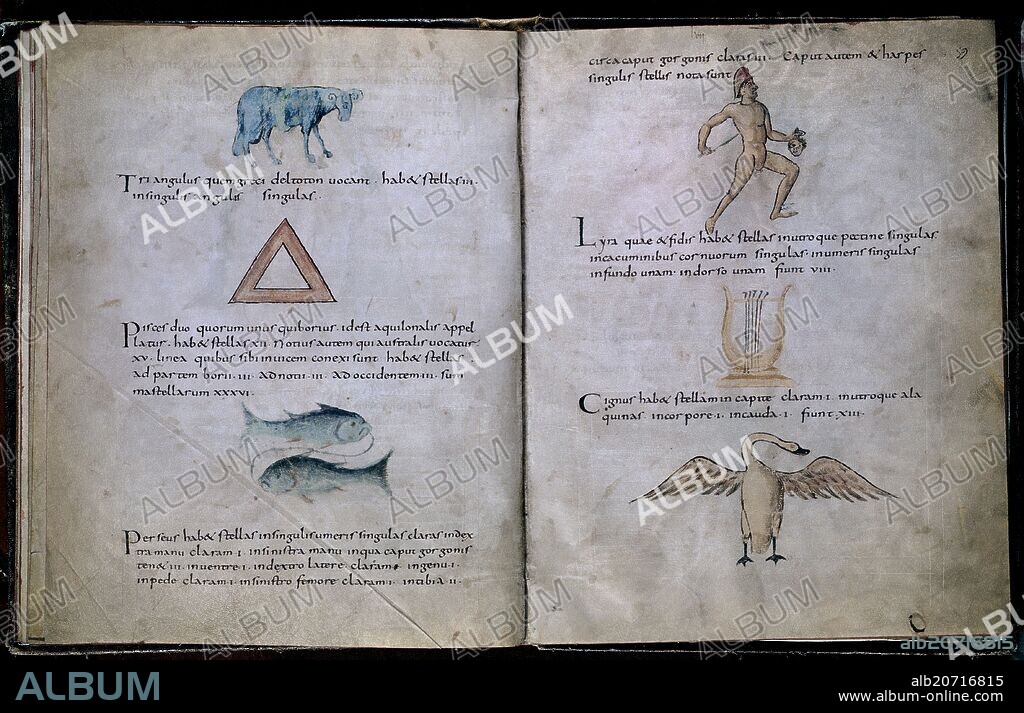 Triangulus quem greci deltoton uocant · hab& stellas iii ·
insingulis angulis singulas ·
Pisces duo quorum unus quiborius · idest aquilonalis appel
latur · hab& stellas xii · Notius autem qui australis uocatur
xv · linea quibus sibi inuicem conexi sunt hab& stellas
ad partem borii · iii · Ad notii · iii · Ad occidentem · iii · sum
ma stellarum xxxvi ·
Perseus hab& stellas insingulis umeris singulas claras index
tra manu claram · i · insinistra manu inqua caput gorgonis
ten& iii · inuentre · i · indextro latere claram · ingenu · i ·
inpede claram · i · insinistro femore claram · i · intibia ii ·
circa caput gorgonis claras iii · Caput autem & harpes
singulis stellis nota sunt
Lyra quae & fidis hab& stellas inutroque pectine singulas
incacuminibus cornuorum singulas · inumeris singulas
infundo unam · indorso unam fiunt viii ·
Cignus hab& stellam in capite claram · i · inutroque ala
quinas incorpore · i · incauda · i · fiunt xiii ·
ALBUM
alb20716815
alb20716815
www.album-online.com